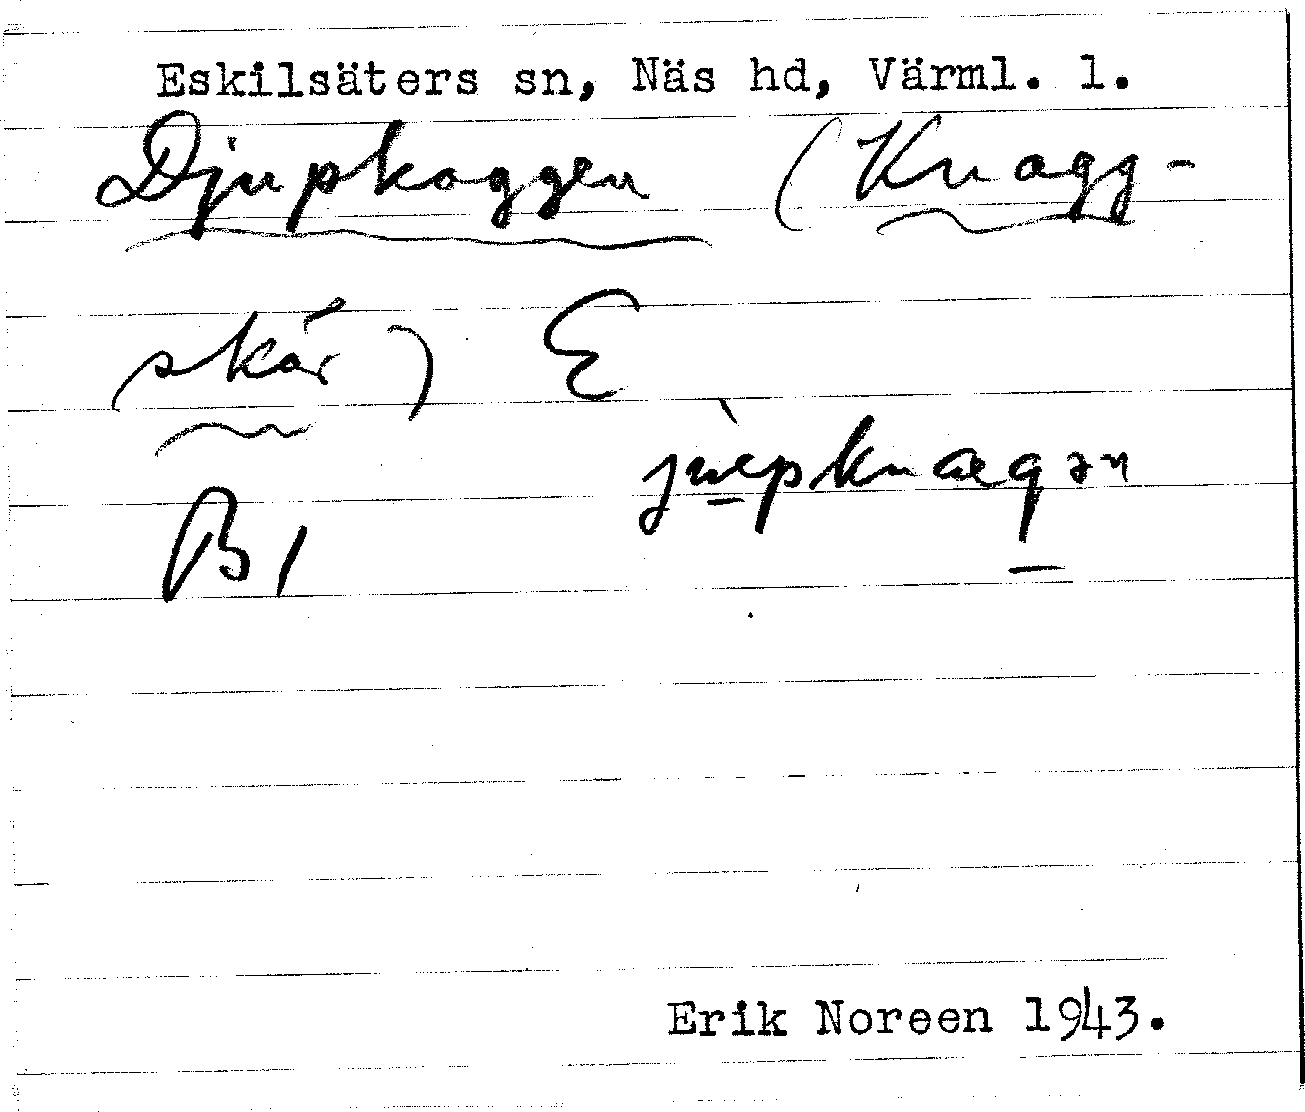 Eskilsäters sn, Näs hd, Värml. l.
Djupkaggen (Knagg-
skär) E
jùepknægən
B1
Erik Noreen 1943.